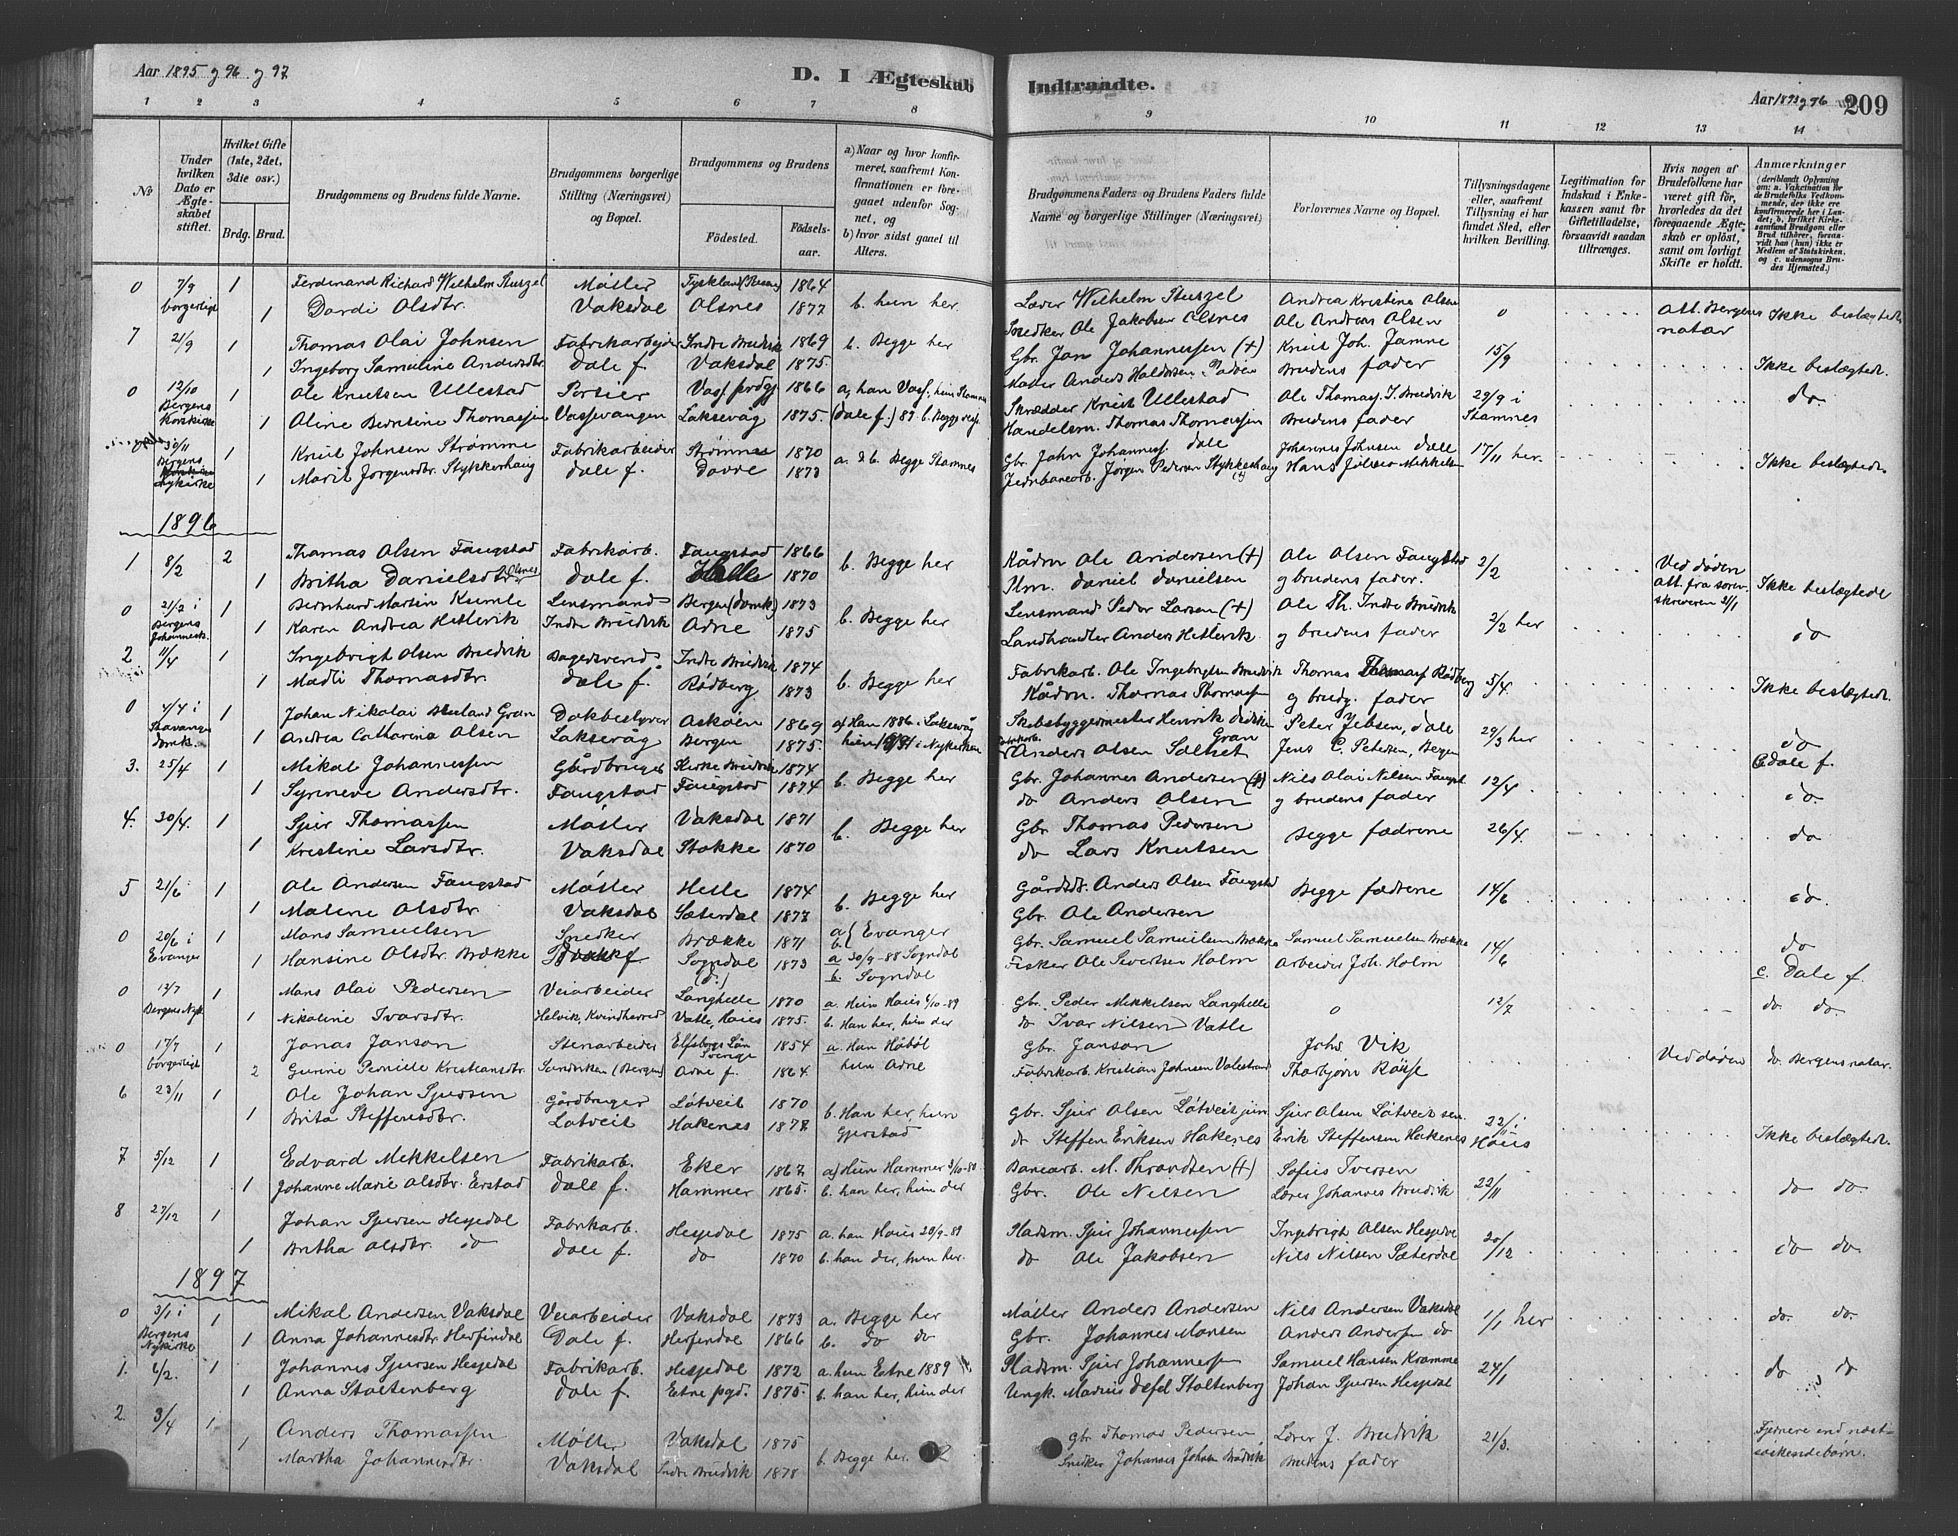 Aar 1895 og 96 og 97
D. I Ægteskab
Indtraadte.
Aar 1895 og 96
209
1 2 3 4 5 6 7 8 9 10 11 12 13 14
No
Under hvilken Dato er Ægteskabet stiftet.
Hvilket Gifte (1ste, 2det, 3die osv.)
Brdg. Brud.
Brudgommens og Brudens fulde Navne.
Brudgommens borgerlige Stilling (Næringsvei) og Bopæl.
Brudgommens og Brudens
Fødested. Fødselsaar.
a) Naar og hvor konfirmeret, saafremt Konfirmationen er foregaaet udenfor Sognet, og
b) hvor sidst gaaet til Alters.
Brudgommens Faders og Brudens Faders fulde Navne og borgerlige Stillinger (Næringsvei)
Forlovernes Navne og Bopæl.
Tillysningsdagene eller, saafremt Tillysning ei har fundet Sted, efter hvilken Bevilling.
Legitimation for Indskud i Enkekassen samt for Giftetilladelse, forsaavidt saadan tiltrænges.
Hvis nogen af Brudefolkene har været gift før, hvorledes da det foregaaende Ægteskab er opløst, samt om lovligt Skifte er holdt.
Anmærkninger
(deriblandt Oplysning om: a. Vakcination for de Brudefolks Vedkommende, der ikke ere konfirmerede her i Landet; b. hvilket Kirkesamfund Brudgom eller Brud tilhører, forsaavidt han (hun) ikke er Medlem af Statskirken, og c. udensogns Brudes Hjemsted.)
0 7/9 1 Ferdinand Richard Wilhelm Møller 1864
borgerligt 1 Dordi Olsdtr. Vaksdal Olsnes 1877 b. hun her
Wilhelm Andrea Kristine Olsen 0 Att. Bergens natar Ikke beslægtede
Ole Jakobsen Olsnes Ole Andreas Olsen
7 21/9 1 Thomas Olai Johnsen Fabrikarbeider Indre Bruvik 1869 b. Begge her
1 Ingeborg Samuline Andersdtr. Dale f. Vaksdal 1875
Gbr. Jon Johannessen (+) Knut Joh. Jamne 15/9 Ikke beslægtede.
Møller Anders Haldorsen Brudens fader
0 12/10 1 Ole Knutsen Ullestad Portier 1866
Bergens Korskirke 1 Aline Berntine Thomassen Vossevangen Laksevåg 1875
Skrædder Knut Ullestad Ole Thomas. I. Bruvik 29/9 i Stamnes do
Handelsm. Thomas Thomassen Brudens fader
30/11 1 Knut Johnsen Strømme Fabrikarbeider Strømnes 1870 a. & b. Begge Stamnes
Bergens Nykirke 1 Marit Jørgensdtr Stykkerhaug Dale f. Dovre 1873
Gbr. John Johanness. Dale Johannes Johnsen Dale 17/11 her. Ikke beslægtede.
Jernbanearb. Jørgen Pederson Stykkerhaug (+)
1896
1 8/2 2 Thomas Olsen Faugstad Fabrikarb. Faugstad 1866 b. Begge her
1 Britha Danielsdtr Olsnes Dale f. Helle 1870
Kådm Ole Andersen (+) Ole Olsen Faugstad 2/2 Ved døden Ikke beslægtede
Daniel Danielsen og brudens fader. att. fra sorenskriveren 31/1
0 21/2 i 1 Bernhard Martin Kremle Lensmand Bergen (Domk) 1873 b. Begge her
Bergens Johannesk. 1 Karen Andrea Hetlevik Indre Bruvik Arne 1875
Lensmand Peder Larsen (+) Ole Th. Indre Bruvik 2/2 her do
Landhandler Anders Hetlevik og brudens fader
2 11/4 1 Ingebrigt Olsen Bruvik Bagersvend Indre Bruvik 1874 b. Begge her
1 Madli Thomasdtr. Dale f. Rødberg 1873
Fabrikarb. Ole Ingebrigtsen Bruvik Thomas Thomass Rødberg 5/4. Ikke beslægtede.
Kådm. Thomas Thomassen og brudg. fader
0 4/4 i 1 Johan Nikolai Gran Dokbestyrer Askøen 1869 a) Han 1886 i Laksevåg
Stavanger Domk. 1 Andrea Catharina Olsen Laksevåg Bergen 1875 hun 1891 i Nykirken
Skibsbyggermester Henrik Gran Peter Jebsen, Dale 29/3 her do
Fabrikarb. Anders Olsen Jens C. Petersen, Bergen c Dale f.
3. 25/4 1 Mikal Johannessen Gårdbruger 1874 b. Begge her
1 Syneve Andersdtr. Faugstad Faugstad 1874
Gbr. Johannes Andersen (+) Nils Olai Nilsen Faugst. 12/4 do.
do Anders Olsen og brudens fader
4. 30/4. 1 Sjur Thomassen Møller Vaksdal 1871 b. Begge her
1 Kristine Larsdtr. Vaksdal Stokke 1870
Gbr. Thomas Pedersen Begge fædrene 26/4. do
do Lars Knutsen
5 21/6 1 Ole Andersen Faugstad Møller Helle 1874 b. Begge her
1 Malene Olsdtr. Vaksdal Sæterdal 1877
Anders Olsen Faugstad Begge fædrene 14/6 do.
Gbr. Ole Andersen
0 20/6 i 1 Mons Samuelsen Snedker Brække 1871 a b Evanger
Evanger 1 Hansine Olsdtr. Brække Sogndal 1873 a 30/9-88 Sogndal b. Sogndal
Gbr. Samuel Samuelsen Brække Samuel Samuelsen Brække 14/6 do
Fisker Ole Sivertsen Holm Arbeider Joh. Holm c. Dale f.
0 12/7 1 Mons Olai Pedersen Veiarbeider Langhelle 1870 a. Hun Haus 6/10-89
Bergens Nyk. 1 Nikoline Ivarsdtr. Helvik, Kvindherred Vatle, Haus 1875. b. Han her, hun der
Gbr. Peder Mikkelsen Langhelle 0 12/7 do. do.
do Ivar Nilsen Vatle
0 17/7 1 Jonas Janson Stenarbeider Elfsborgs Län Sverige 1854 a. Han Håbøl
borgerligt 2 Gurine Pernille Kristiansdtr. Sandviken (Bergen) Arne f. 1864 hun Arne
Gbr. Janson Johs Vik Ved døden do. Bergens natar.
Fabrikarb. Kristian Johnsen Valestrand
6 23/11 1 Ole Johan Sjursen Gårdbruger Løtveit 1870 b. Han her, hun
1 Brita Steffensdtr. Løtveit Hakenes 1878 Gjerstad
Gbr. Sjur Olsen Løtveit jun Sjur Olsen Løtveit sen. 22/11 i Haus Ikke beslægtede.
do Steffen Eriksen Hakenes Erik Steffensen Hakenes
7 5/12 1 Edvard Mekkelsen Fabrikarb. Eker 1867 a) Hun Hammer 3/10-80
1 Johanne Marie Olsdtr. Erstad Dale f. Hammer 1865. b. han her, hun der
Banearb. M. Throndsen (+) Sofus Iversen 22/11 do do.
Gbr. Ole Nilsen Lærer Johannes Bruvik
8 27/12 1 Johan Sjursen Hesjedal Fabrikarb. Hesjedal 1875 a. han Haus 20/9-89
1 Britha Olsdtr. do Dale f. do 1870 b. han der, hun her.
Pladsm. Sjur Johannessen Ingebrigt Olsen Hesjedal 20/12 do do.
do Ole Jakobsen Nils Nilsen Sæterdal
1897
0 3/1 i 1 Mikal Andersen Vaksdal Veiarbeider Vaksdal 1873 a. Begge her
Bergens Nykirke 1 Anna Johannesdtr Herfindal Dale f. Herfindal 1866 b. do do
Møller Anders Andersen Nils Andersen Vaksdal 1/1 her do. do.
Gbr. Johannes Monsen Anders Andersen do
1. 6/2. 1 Johannes Sjursen Hesjedal Fabrikarb. Hesjedal 1872 a. hun Etne 1889
1 Anna Stoltenberg Dale f. Etne pgd. 1875. b. han her, hun der
Pladsm. Sjur Johannessen Samuel Hansen Kramme 24/1 do do
Ungk. Marius Stoltenberg Johan Sjursen Hesjedal
2. 3/4 1 Anders Thomassen Møller Vaksdal 1875
1 Martha Johannesdtr. Vaksdal Indre Bruvik 1878 b. Begge her.
Gbr Thomas Pedersen Lærer J. Bruvik 21/3. Fjernere end næstsøskendebørn.
Snedker Johannes Johnsen Bruvik Brudens fader